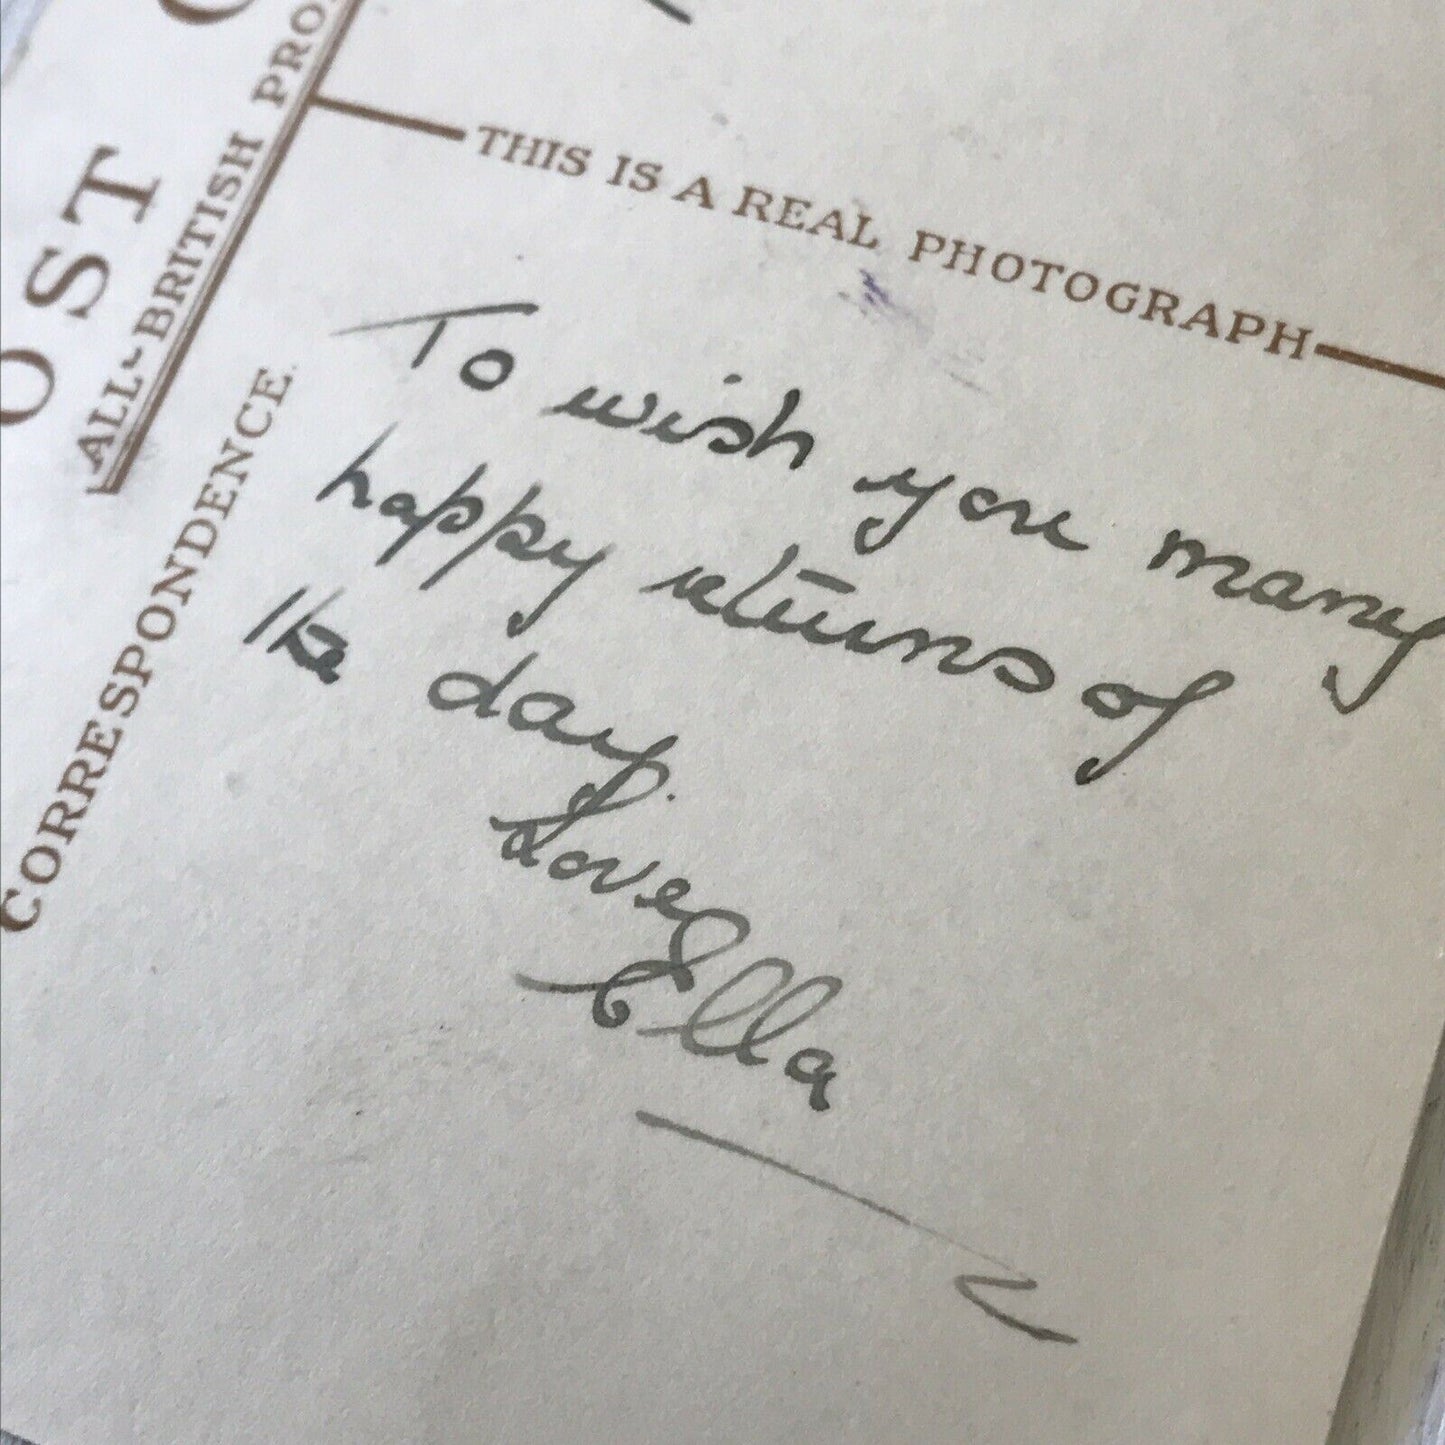 OST C
ALL-BRITISH PRO
THIS IS A REAL PHOTOGRAPH
CORRESPONDENCE.
To wish you many
happy returns of
the day.
Love
Ella